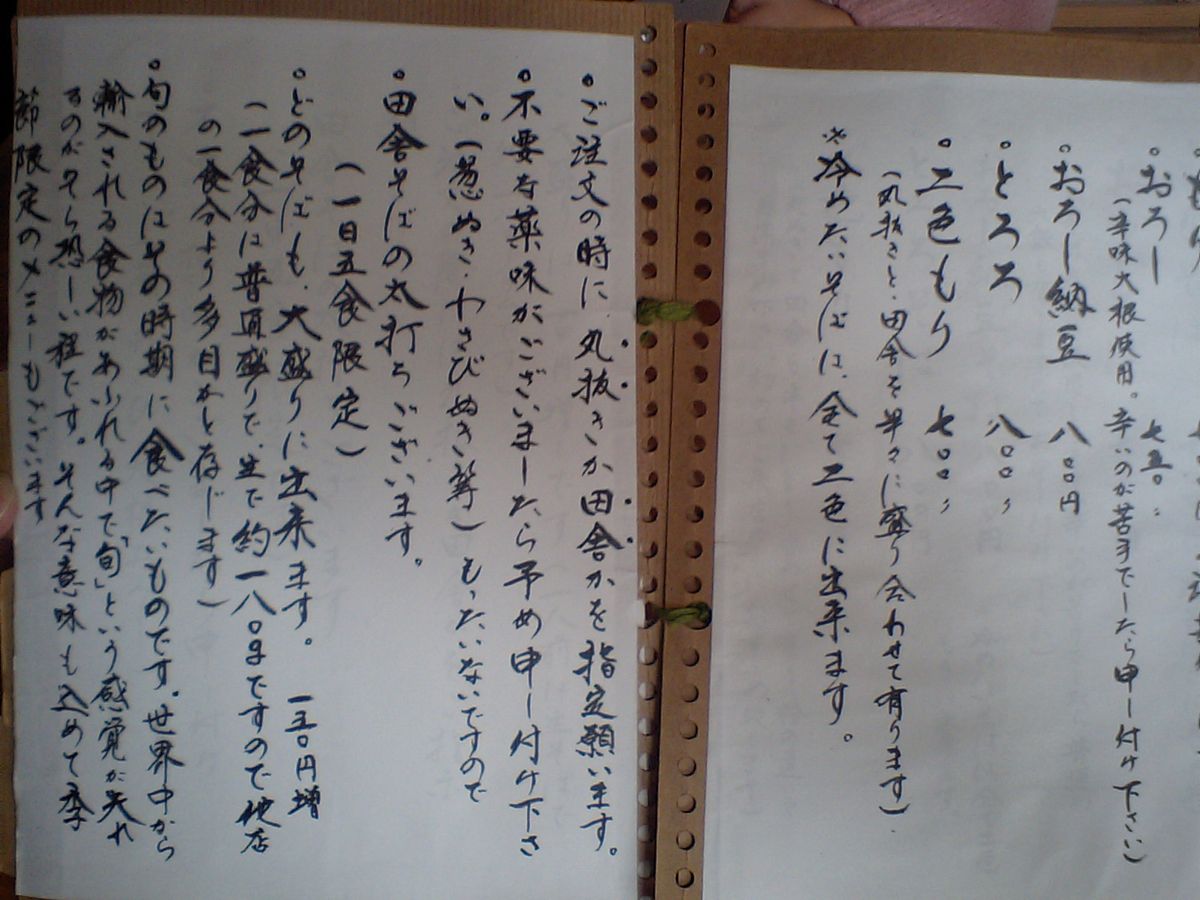 。おろし 七五〇〃
(辛味大根使用。辛いのが苦手でしたら申し付け下さい)
。おろし納豆 八〇〇円
。とろろ 八〇〇〃
。二色もり 七〇〇〃
(丸抜きと、田舎を半々に盛り合わせて有ります)
※冷めたいそばは、全て二色に出来ます。
。ご注文の時に、丸抜きか田舎かを指定願います。
。不要な薬味がございましたら予め申し付け下さ
い。(葱ぬき・わさびぬき等)もったいないですので
。田舎そばの太打ちございます。
(一日五食限定)
。どのそばも、大盛りに出来ます。 一五〇円増
(一食分は普通盛りで、生で約一八〇gですので他店
の一食分より多目かと存じます)
。旬のものはその時期に食べたいものです。世界中から
輸入される食物があふれる中で「旬」という感覚が失れ
るのがそら恐しい程です。そんな意味も込めて季
節限定のメニューもございます